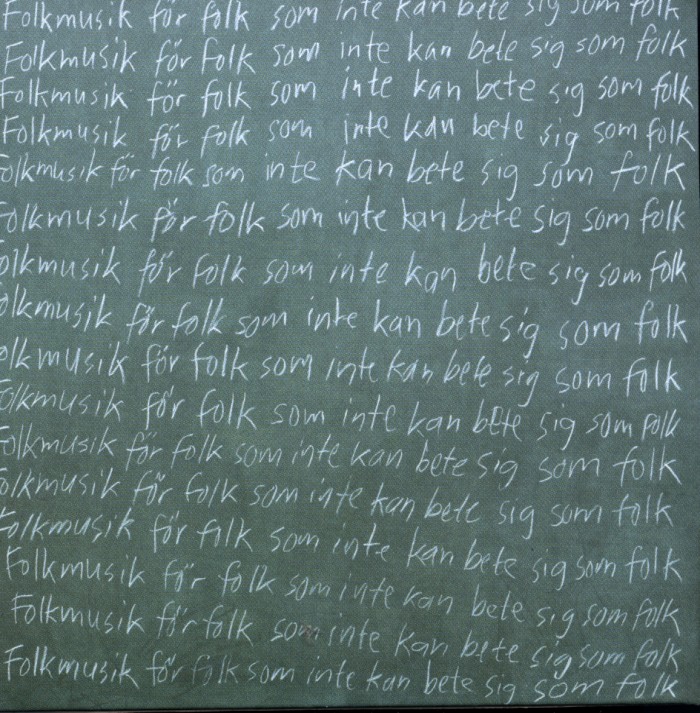 Folkmusik för folk som inte kan bete sig som folk
Folkmusik för folk som inte kan bete sig som folk
Folkmusik för folk som inte kan bete sig som folk
Folkmusik för folk som inte kan bete sig som folk
Folkmusik för folk som inte kan bete sig som folk
Folkmusik för folk som inte kan bete sig som folk
olkmusik för folk som inte kan bete sig som folk
olkmusik för folk som inte kan bete sig som folk
olkmusik för folk som inte kan bete sig som folk
Folkmusik för folk som inte kan bete sig som folk
Folkmusik för folk som inte kan bete sig som folk
olkmusik för folk som inte kan bete sig som folk
Folkmusik för folk som inte kan bete sig som folk
Folkmusik för folk som inte kan bete sig som folk
Folkmusik för folk som inte kan bete sig som folk
Folkmusik för folk som inte kan bete sig som folk